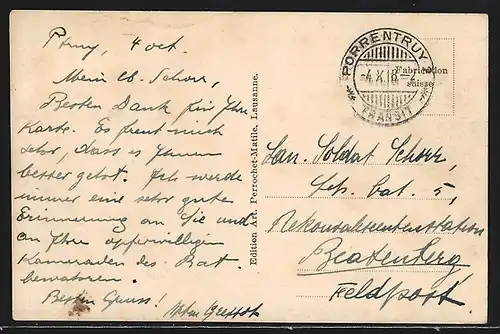 Ptruy, 4 Oct.
Mein lb. Schorr,
Besten Dank für Ihre
Karte. Es freut mich
sehr, dass es Ihnen
besser geht. Ich werde
immer eine sehr gute
Erinnerung an Sie und
an Ihre opferwilligen
Kameraden des Bat.
bewahren.
Besten Gruss!
Edition Art. Perrochet-Matile, Lausanne.
PORRENTRUY
4.X.16
TRANSIT
Fabrication
suisse
San. Soldat Schorr,
Geb. Bat. 5,
Rekonvalescentenstation
Beatenberg
Feldpost